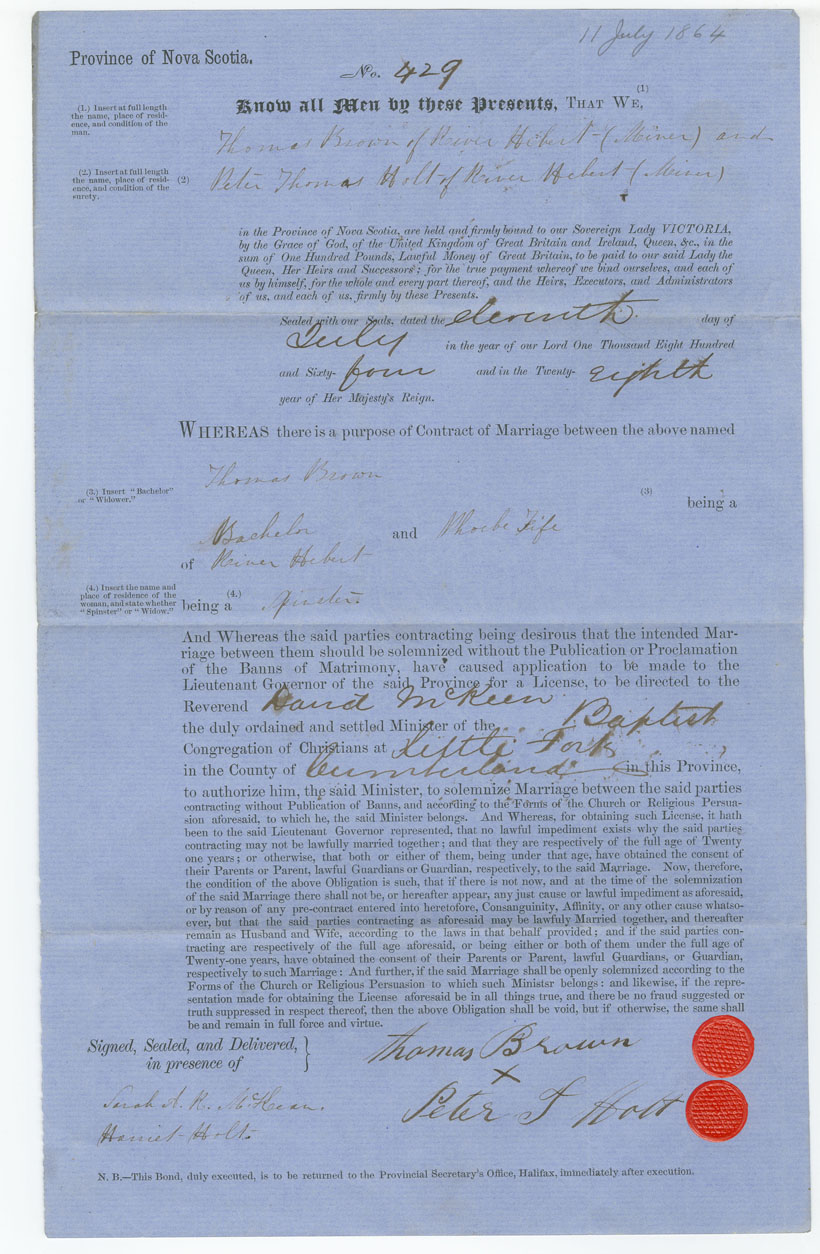 11 July 1864
Province of Nova Scotia.
No. 429
(1)
Know all Men by these Presents, THAT WE,
(1.) Insert at full length
the name, place of resid-
ence, and condition of the
man.
Thomas Brown of River Hibert (Miner) and
(2.) Insert at full length
the name, place of resid-
ence, and condition of the
surety.
(2)
Peter Thomas Holt of River Hebert (Miner)
in the Province of Nova Scotia, are held and firmly bound to our Sovereign Lady VICTORIA,
by the Grace of God, of the United Kingdom of Great Britain and Ireland, Queen, &c., in the
sum of One Hundred Pounds, Lawful Money of Great Britain, to be paid to our said Lady the
Queen, Her Heirs and Successors; for the true payment whereof we bind ourselves, and each of
us by himself, for the whole and every part thereof, and the Heirs, Executors, and Administrators
of us, and each of us, firmly by these Presents.
Sealed with our Seals, dated the eleventh day of
July in the year of our Lord One Thousand Eight Hundred
and Sixty- four and in the Twenty- eighth
year of Her Majesty's Reign.
WHEREAS there is a purpose of Contract of Marriage between the above named
Thomas Brown
(3.) Insert "Bachelor"
or "Widower."
(3)
being a
Bachelor and Phoebe Fife
of River Hebert
(4.) Insert the name and
place of residence of the
woman, and state whether
"Spinster" or "Widow."
(4.)
being a Spinster.
And Whereas the said parties contracting being desirous that the intended Mar-
riage between them should be solemnized without the Publication or Proclamation
of the Banns of Matrimony, have caused application to be made to the
Lieutenant Governor of the said Province for a License, to be directed to the
Reverend David McKeen
the duly ordained and settled Minister of the Baptist
Congregation of Christians at Little Forks,
in the County of Cumberland in this Province,
to authorize him, the said Minister, to solemnize Marriage between the said parties
contracting without Publication of Banns, and according to the Forms of the Church or Religious Persua-
sion aforesaid, to which he, the said Minister belongs. And Whereas, for obtaining such License, it hath
been to the said Lieutenant Governor represented, that no lawful impediment exists why the said parties
contracting may not be lawfully married together; and that they are respectively of the full age of Twenty
one years; or otherwise, that both or either of them, being under that age, have obtained the consent of
their Parents or Parent, lawful Guardians or Guardian, respectively, to the said Marriage. Now, therefore,
the condition of the above Obligation is such, that if there is not now, and at the time of the solemnization
of the said Marriage there shall not be, or hereafter appear, any just cause or lawful impediment as aforesaid,
or by reason of any pre-contract entered into heretofore, Consanguinity, Affinity, or any other cause whatso-
ever, but that the said parties contracting as aforesaid may be lawfuly Married together, and thereafter
remain as Husband and Wife, according to the laws in that behalf provided; and if the said parties con-
tracting are respectively of the full age aforesaid, or being either or both of them under the full age of
Twenty-one years, have obtained the consent of their Parents or Parent, lawful Guardians, or Guardian,
respectively to such Marriage: And further, if the said Marriage shall be openly solemnized according to the
Forms of the Church or Religious Persuasion to which such Ministsr belongs: and likewise, if the repre-
sentation made for obtaining the License aforesaid be in all things true, and there be no fraud suggested or
truth suppressed in respect thereof, then the above Obligation shall be void, but if otherwise, the same shall
be and remain in full force and virtue.
Signed, Sealed, and Delivered,
in presence of
Thomas Brown
X
Peter T Holt
Sarah A. R. McKean.
Harriet Holt.
N. B.—This Bond, duly executed, is to be returned to the Provincial Secretary's Office, Halifax, immediately after execution.